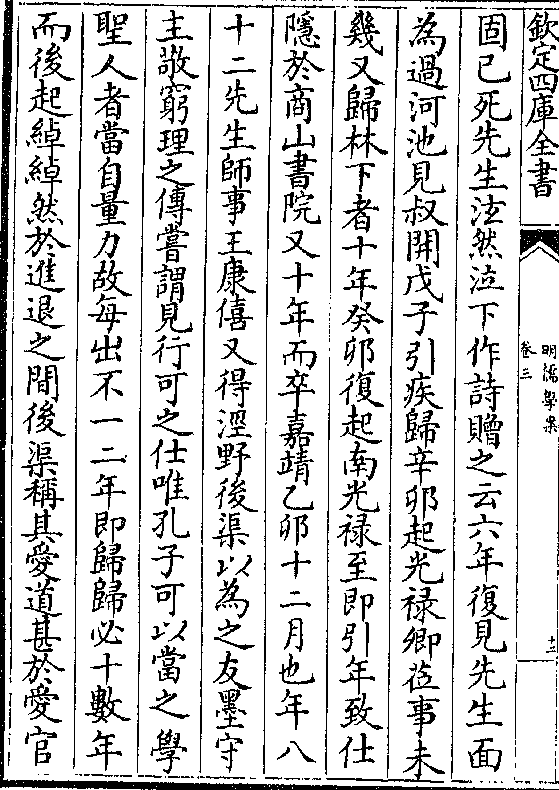 欽定四庫全書
明儒學案
卷三
十三
固已死先生泫然泣下作詩贈之云六年復見先生面
為過河池見叔開戊子引疾歸辛卯起光禄卿莅事未
幾又歸林下者十年癸卯復起南光禄至即引年致仕
隱於商山書院又十年而卒嘉靖乙卯十二月也年八
十二先生師事王康僖又得涇野後渠以為之友墨守
主敬窮理之傳嘗謂見行可之仕唯孔子可以當之學
聖人者當自量力故每出不一二年即歸歸必十數年
而後起綽綽然於進退之間後渠稱其愛道甚於愛官